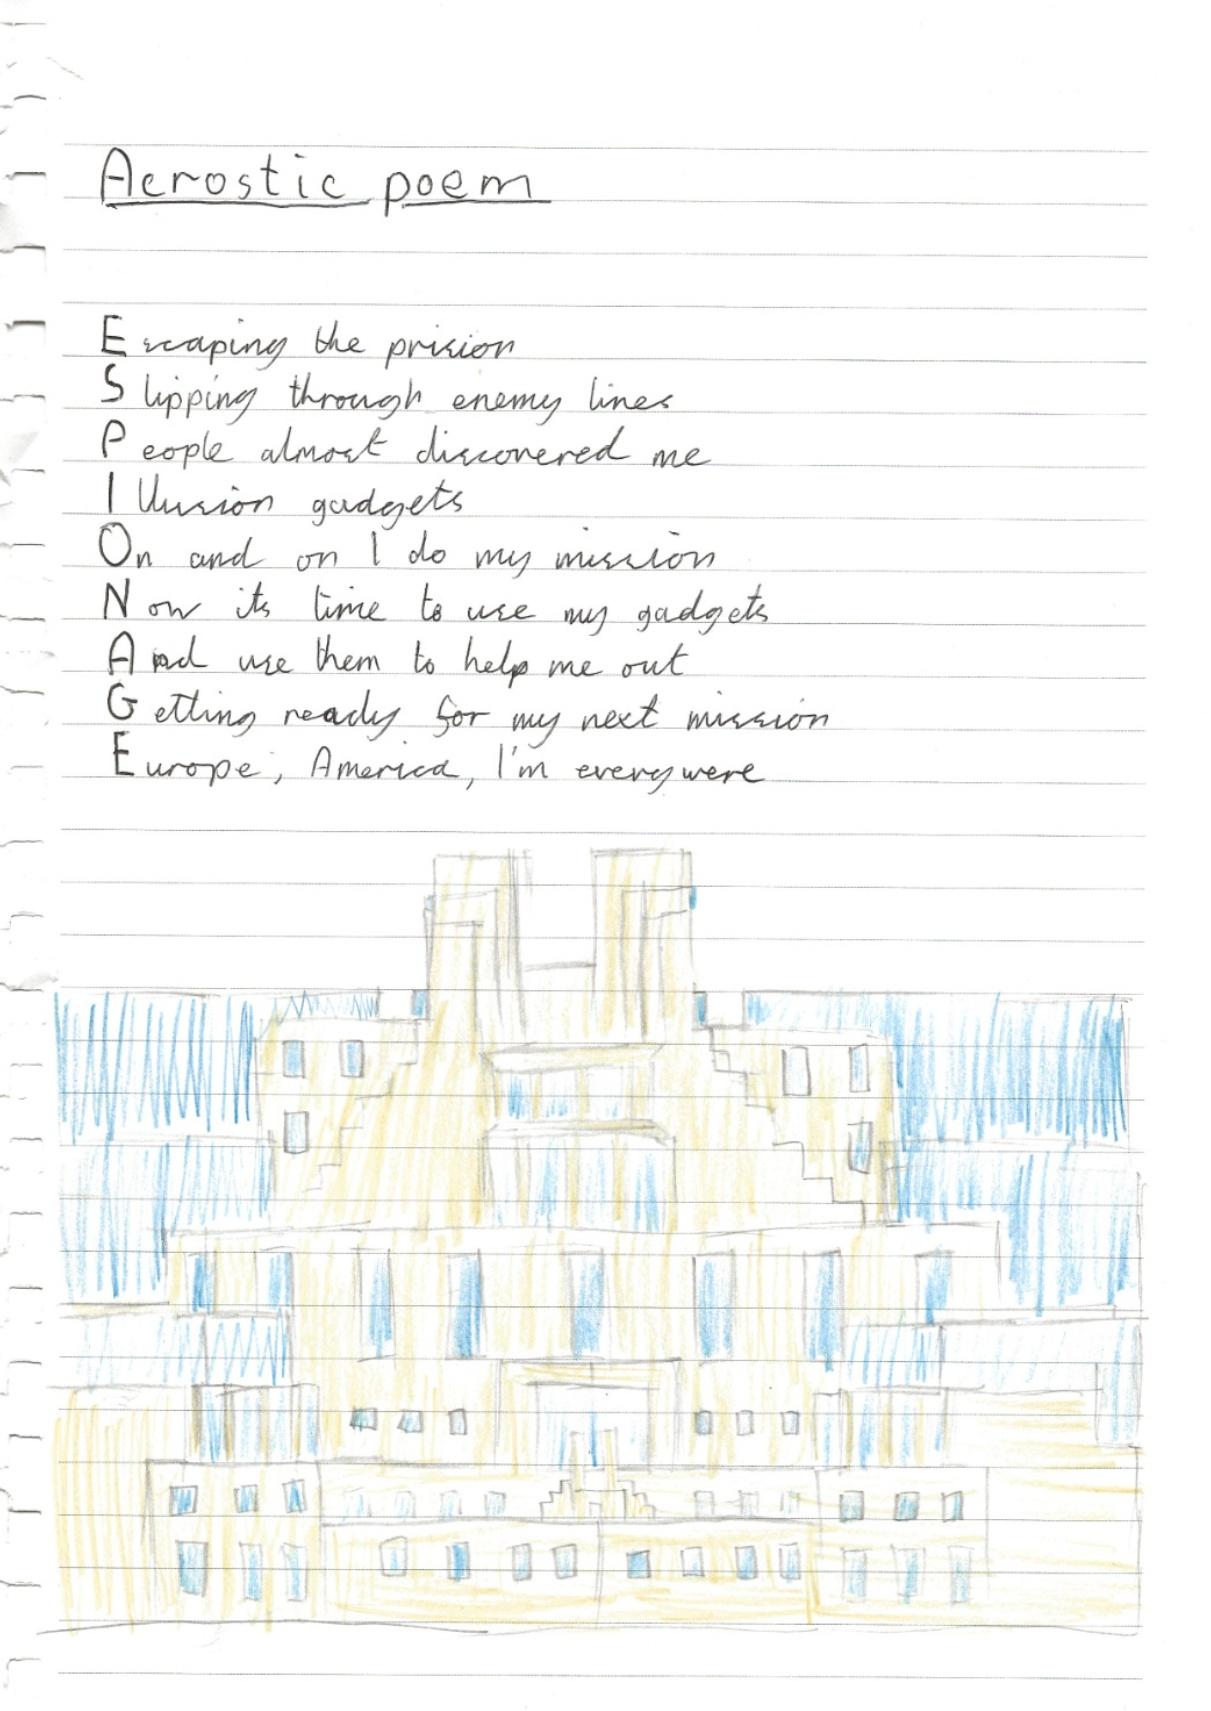 Acrostic poem
Escaping the prision
Slipping through enemy lines
People almost discovered me
Illusion gadgets
On and on I do my mission
Now its time to use my gadgets
And use them to help me out
Getting ready for my next mission
Europe, America, I'm everywere